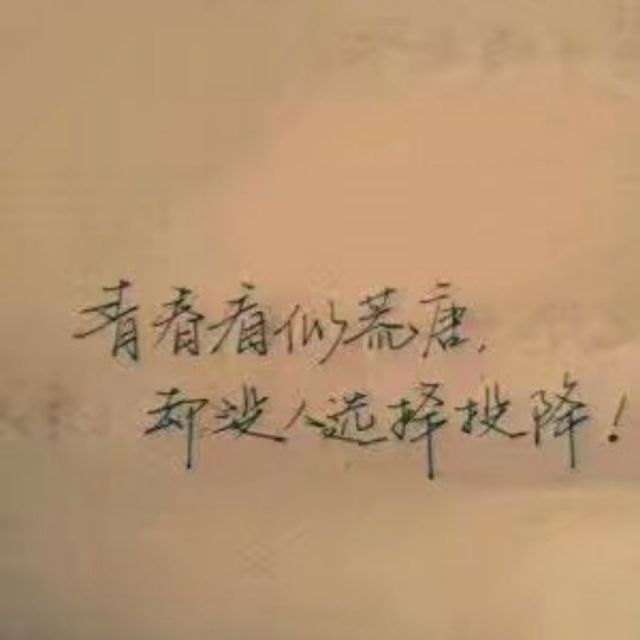 青春看似荒唐,
却没人选择投降!